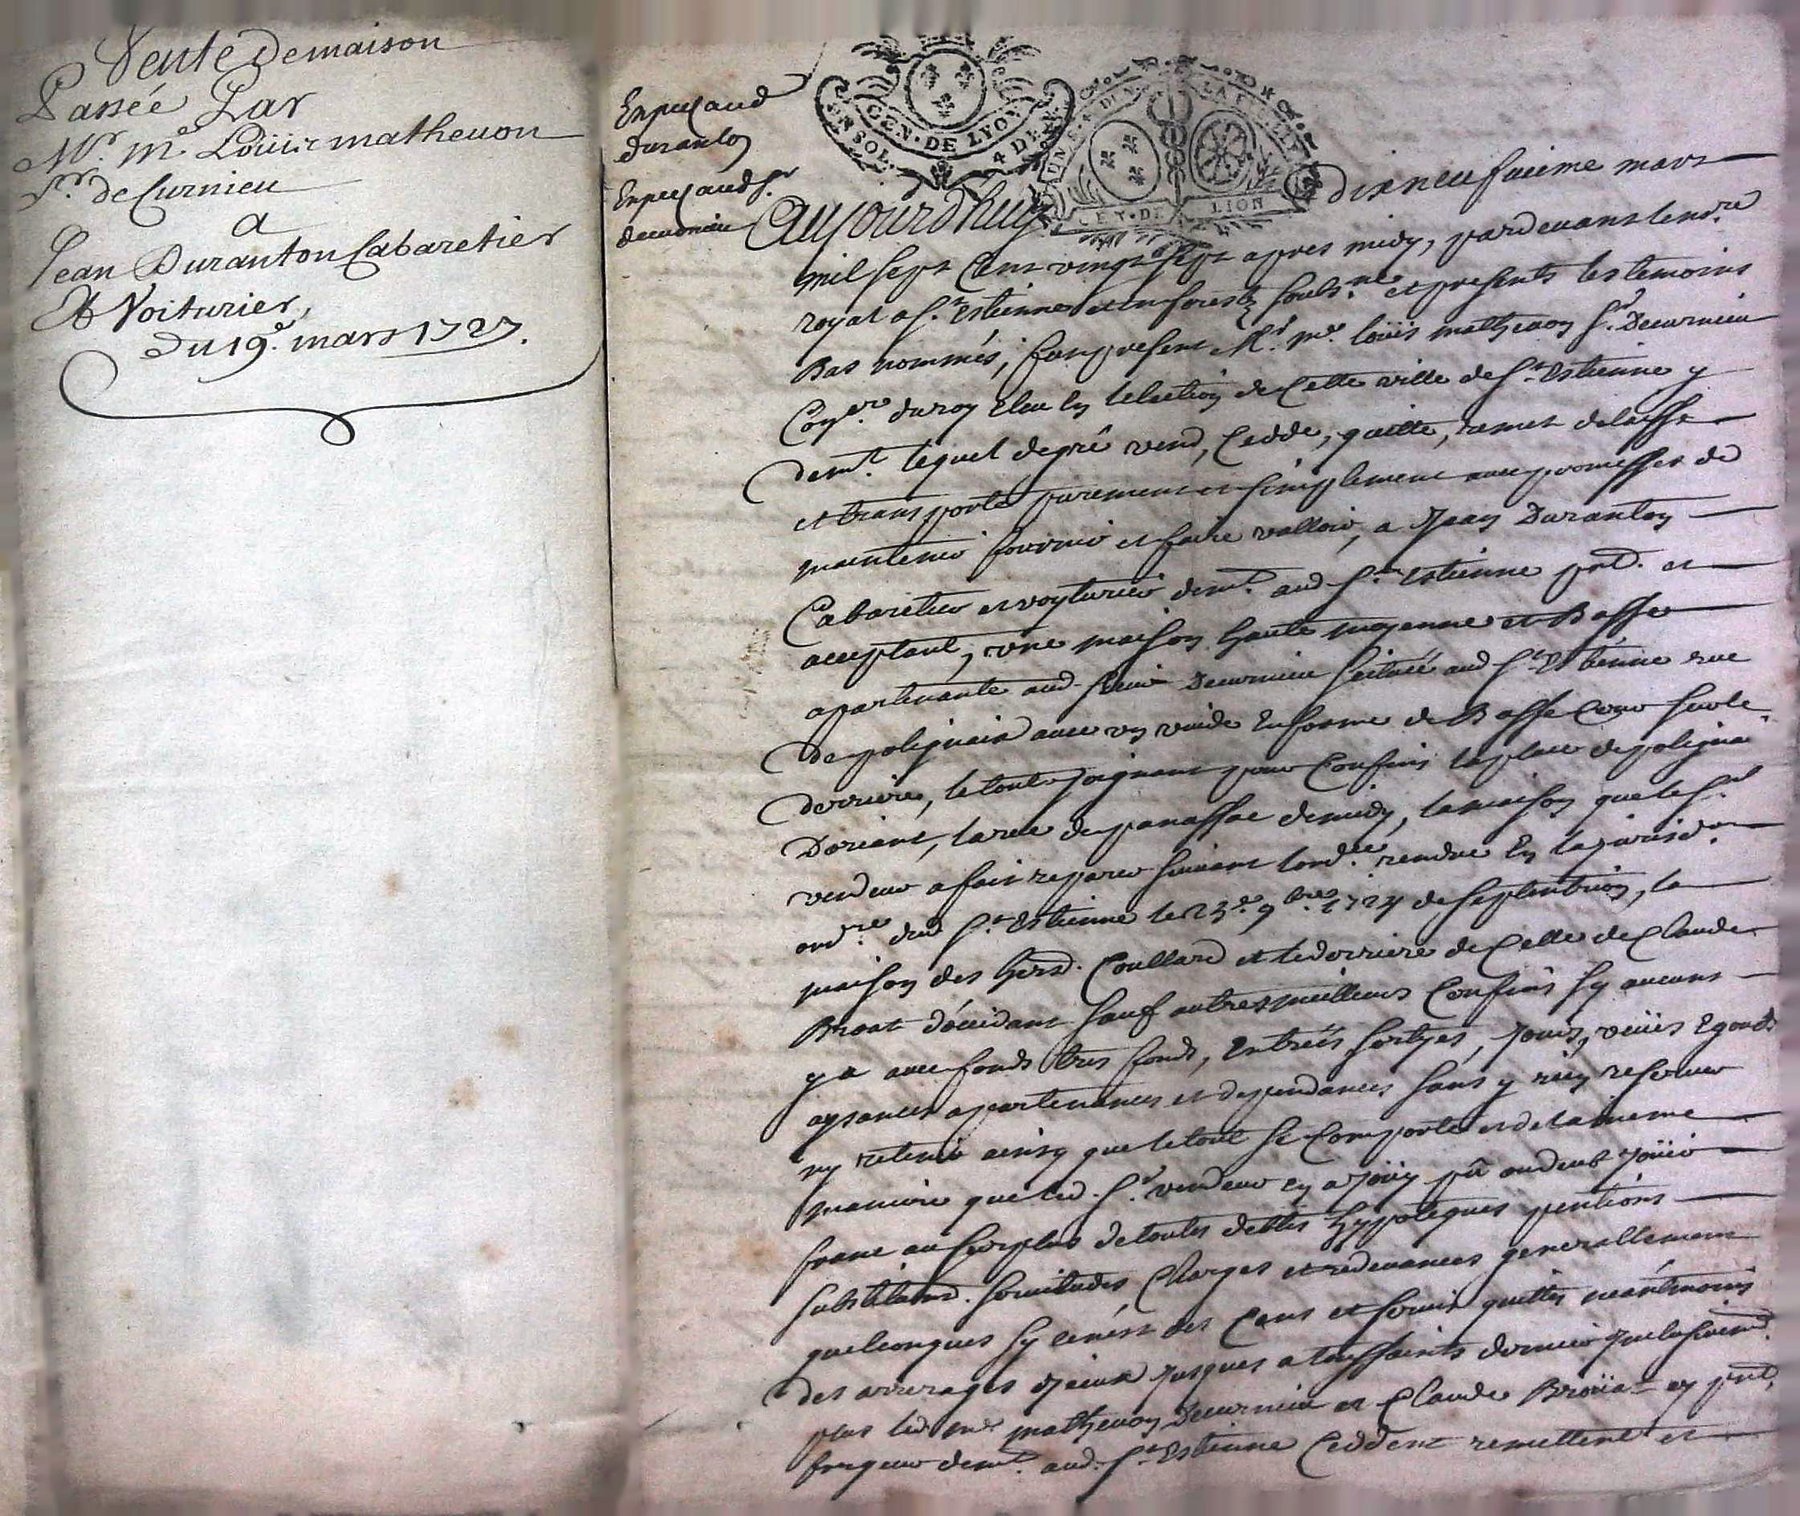 Vente de maison
Passée Par
Mr. Me. Loüis mathevon
Sr. de Curnieu
a
Jean Duranton Cabaretier
Et Voiturier,
Du 19e. mars 1727.
duranton
decurnieu
GEN. DE LYON
4 DE
LA FEUILLE
GEN. DE LION
aujourdhuy dixneufvieme mars
mil sept cent vingt sept apres midy, pardevant le nore
royal a St. Estienne en forest soubsne. et presents les temoins
Bas nommés, fut present Mr. Me. loüis mathevon Sr. Decurnieu
Coner. du roy Eleu En lelection de Cette ville de St. Estienne y
demt. lequel de gré vend, Cedde, quitte, remet delaisse
et transporte purement et simplement avec promesses de
maintenir fournir et faire valloir, a Jean Duranton
Cabaretier et voyturier demt. aud St. Estienne pnt. et
acceptant, une maison haute moyenne et Basse
apartenante aud sieur Decurnieu scituée aud St. Estienne rue
de polignais avec un vuide En forme de Basse Cour sur le
derriere, le tout joignant pour Confins la place de polignai
Dorient, la rue de panassac de midy, la maison que led Sr.
vendeur a fait reparer suivant lordce. rendue En la jurisdon.
ordre. dud St. Estienne le 23e. 9bre. 1724 de septentrion, la
maison des hers. Coullard et le derriere de Celle de Claude
Broat d'occident sauf autres meilleurs Confins sy aucuns
y a avec fonds tres fonds, Entreés sortyes, jours, veües Egouts
aysances apartenances et dependances sans y rien reserver
ny retenir ainsy que le tout se Comporte et de la meme
maniere que led. Sr. vendeur En a joüy pû ou deub joüir
franc au surplus de toutes debtes hypoteques pentions
substitions. servitudes, Charges et redevances generallement
quelconques sy cenest des Cens et servis quittes neantmoins
des arrerages diceux jusques a toussaints dernier
plus led Me mathevon Decurnieu et Claude Broüat
forgeur demt. aud. St. Estienne Ceddent remettent et